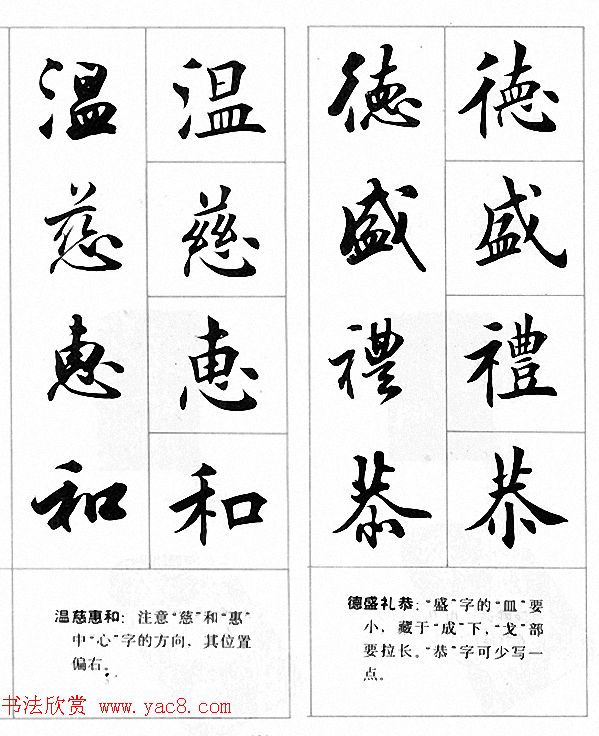 德 德
盛 盛
禮 禮
恭 恭
德盛礼恭：“盛”字的“皿”要
小，藏于“成”下，“戈”部
要拉长。“恭”字可少写一
点。
温 温
慈 慈
惠 惠
和 和
温慈惠和：注意“慈”和“惠”
中“心”字的方向，其位置
偏右。
书法欣赏 www.yac8.com